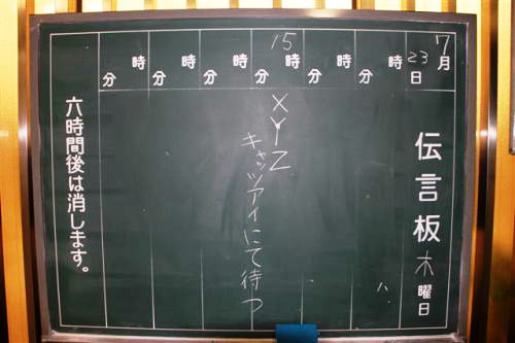 7月
23日
伝言板 木曜日
時 分
時 分
15時 分
時 分
時 分
時 分
XYZ
キャッツアイにて待つ
六時間後は消します。